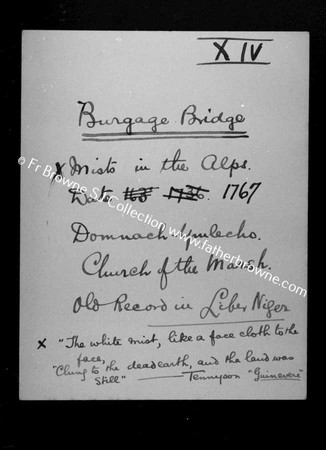 XIV
Burgage Bridge
x Mists in the Alps.
Date 1767
Domnach Imlecho.
Church of the Marsh.
Old Record in Liber Niger
x "The white mist, like a face cloth to the
face,
"Clung to the dead earth, and the land was
still" —— Tennyson "Guinevere"
© Fr Browne SJ Collection www.fatherbrowne.com